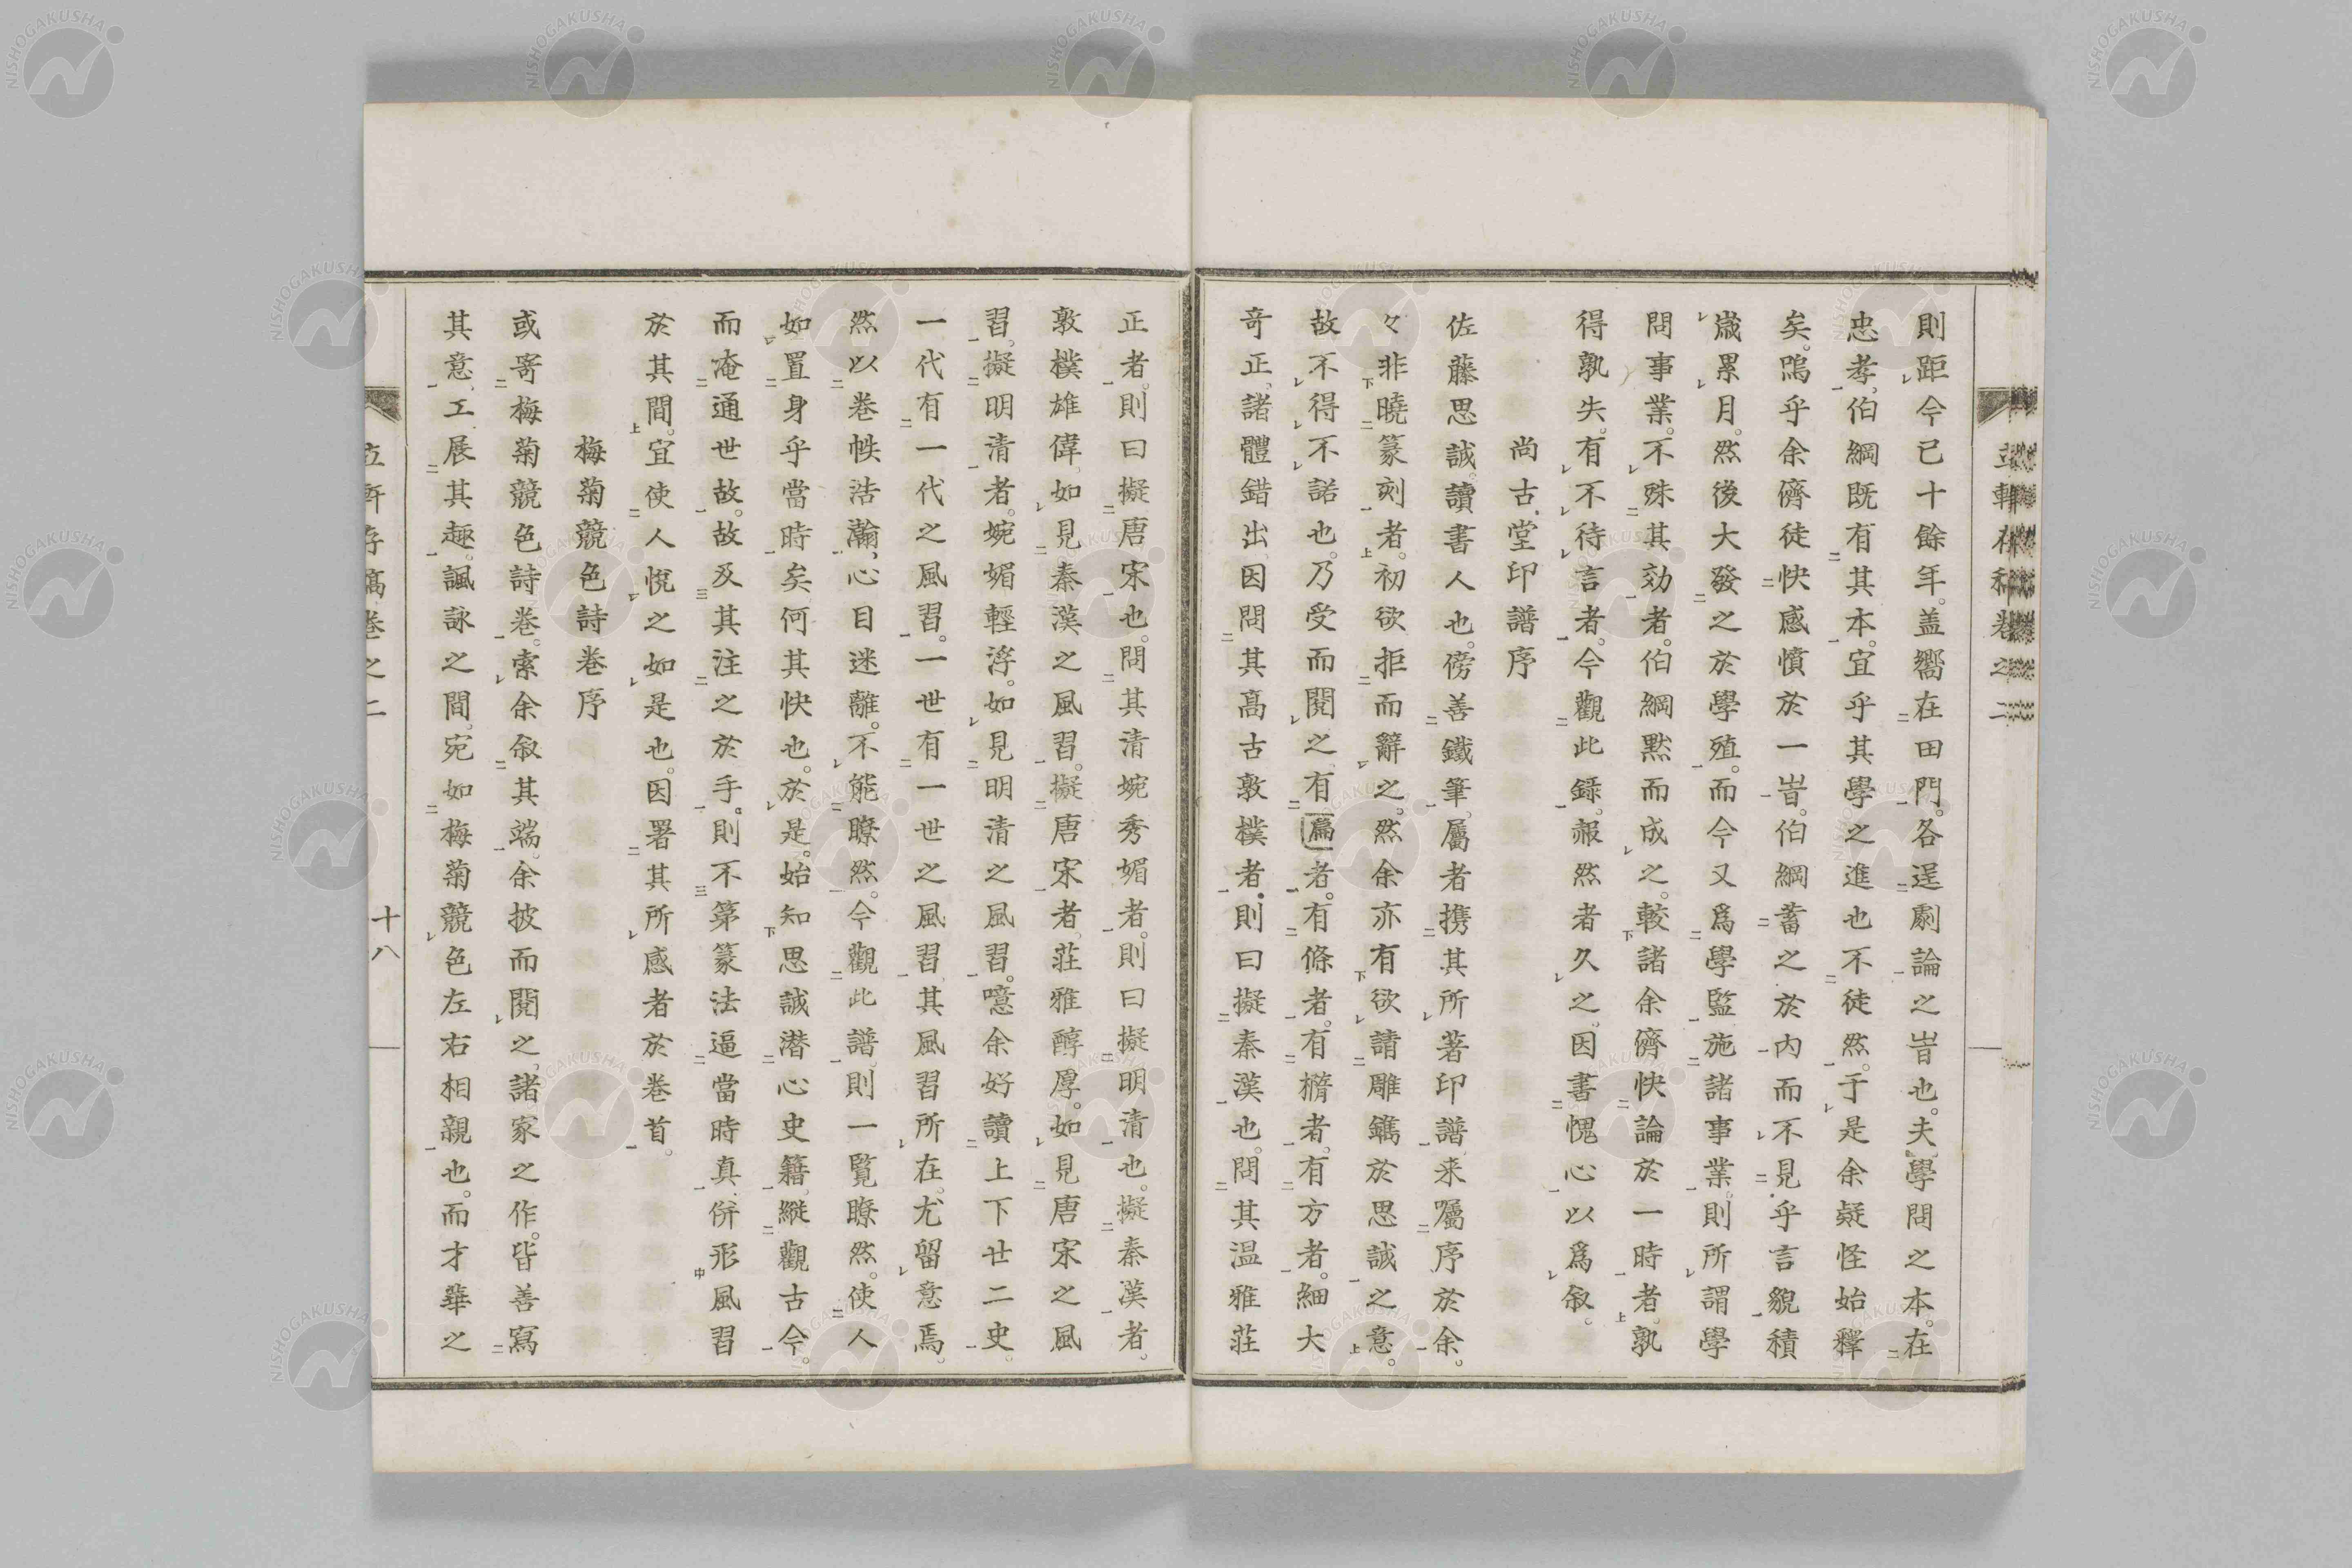 則距今已十餘年。盖嚮在田門。各逞劇論之峕也。夫學問之本。在
忠孝、伯綱既有其本。宜乎其學之進也不徒然。于是余疑怪始釋
矣。嗚乎余儕徒快感憤於一峕。伯綱蓄之於内而不見乎言貌積
歳累月。然後大發之於學殖。而今又爲學監施諸事業。則所謂學
問事業。不殊其効者。伯綱黙而成之。較諸余儕快論於一時者。孰
得孰失。有不待言者。今觀此録。赧然者久之。因書愧心以爲叙。
尚古堂印譜序
佐藤思誠。讀書人也。傍善鐵筆。屬者携其所著印譜来囑序於余。
々非曉篆刻者。初欲拒而辭之。然余亦有欲請雕鐫於思誠之意。
故不得不諾也。乃受而閲之、有扁者。有條者。有橢者。有方者。細大
奇正、諸體錯出、因問其高古敦樸者。則曰擬秦漢也。問其温雅莊
正者。則曰擬唐宋也。問其清婉秀媚者。則曰擬明清也。擬秦漢者。
敦樸雄偉、如見秦漢之風習。擬唐宋者、莊雅醇厚。如見唐宋之風
習。擬明清者。婉媚輕浮。如見明清之風習。噫余好讀上下廿二史。
一代有一代之風習。一世有一世之風習、其風習所在、尤留意焉。
然以巻帙浩瀚、心目迷離。不能瞭然。今觀此譜、則一覧瞭然。使人
如置身乎當時矣何其快也。於是。始知思誠潜心史籍、縱觀古今。
而淹通世故。故及其注之於手。則不第篆法逼當時真、併形風習
於其間。宜使人悦之如是也。因署其所感者於巻首。
梅菊競色詩巻序
或寄梅菊競色詩巻。索余叙其端。余披而閲之、諸家之作。皆善寫
其意、工展其趣。諷詠之間、宛如梅菊競色左右相親也。而才華之
十八